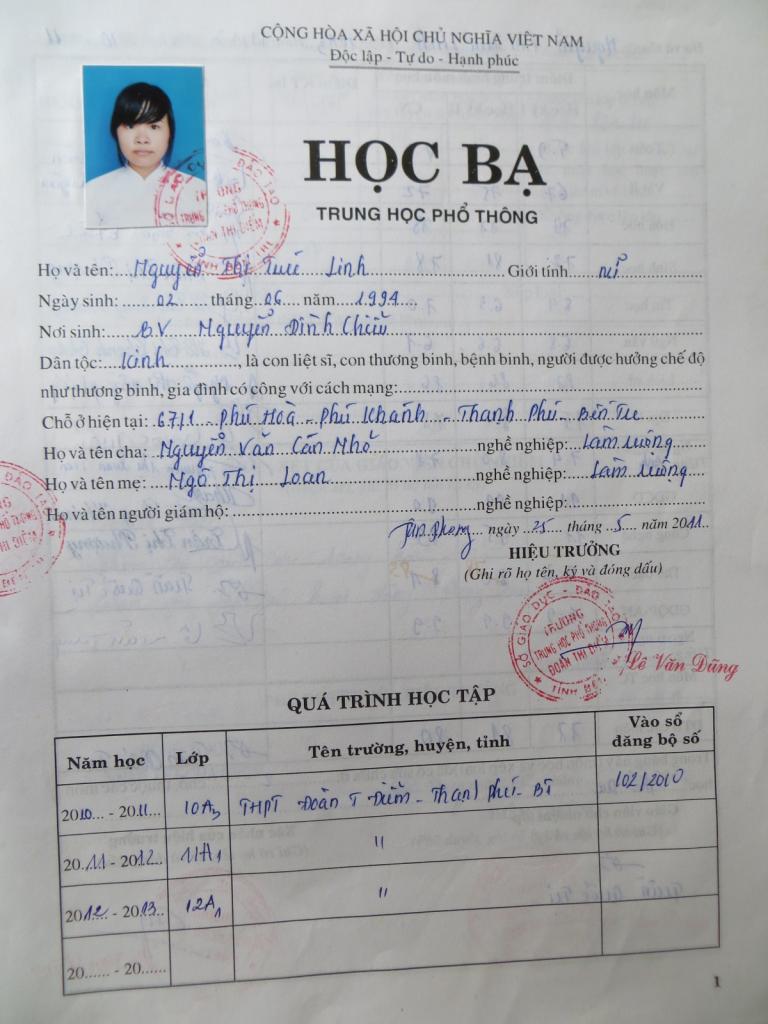 CỘNG HÒA XÃ HỘI CHỦ NGHĨA VIỆT NAM
Độc lập - Tự do - Hạnh phúc
HỌC BẠ
TRUNG HỌC PHỔ THÔNG
Họ và tên: Nguyễn Thị Trúc Linh Giới tính nữ
Ngày sinh: 02 tháng 06 năm 1994
Nơi sinh: B.V Nguyễn Đình Chiểu
Dân tộc: Kinh, là con liệt sĩ, con thương binh, bệnh binh, người được hưởng chế độ
như thương binh, gia đình có công với cách mạng:
Chỗ ở hiện tại: 67/1 Phú Hoà - Phú Khánh - Thạnh Phú - Bến Tre
Họ và tên cha: Nguyễn Văn Cán Nhỏ nghề nghiệp: Làm ruộng
Họ và tên mẹ: Ngô Thị Loan nghề nghiệp: Làm ruộng
Họ và tên người giám hộ: nghề nghiệp:
Tân Phong ngày 25 tháng 5 năm 2011
HIỆU TRƯỞNG
(Ghi rõ họ tên, ký và đóng dấu)
SỞ GIÁO DỤC - ĐÀO TẠO
TRƯỜNG
TRUNG HỌC PHỔ THÔNG
ĐOÀN THỊ ĐIỂM
Lê Văn Dũng
QUÁ TRÌNH HỌC TẬP
Năm học Lớp Tên trường, huyện, tỉnh Vào sổ đăng bộ số
2010 - 2011 10A3 THPT Đoàn T Điểm - Thạnh Phú - BT 102/2010
2011 - 2012 11A1 "
2012 - 2013 12A1 "
20...... - 20......
1